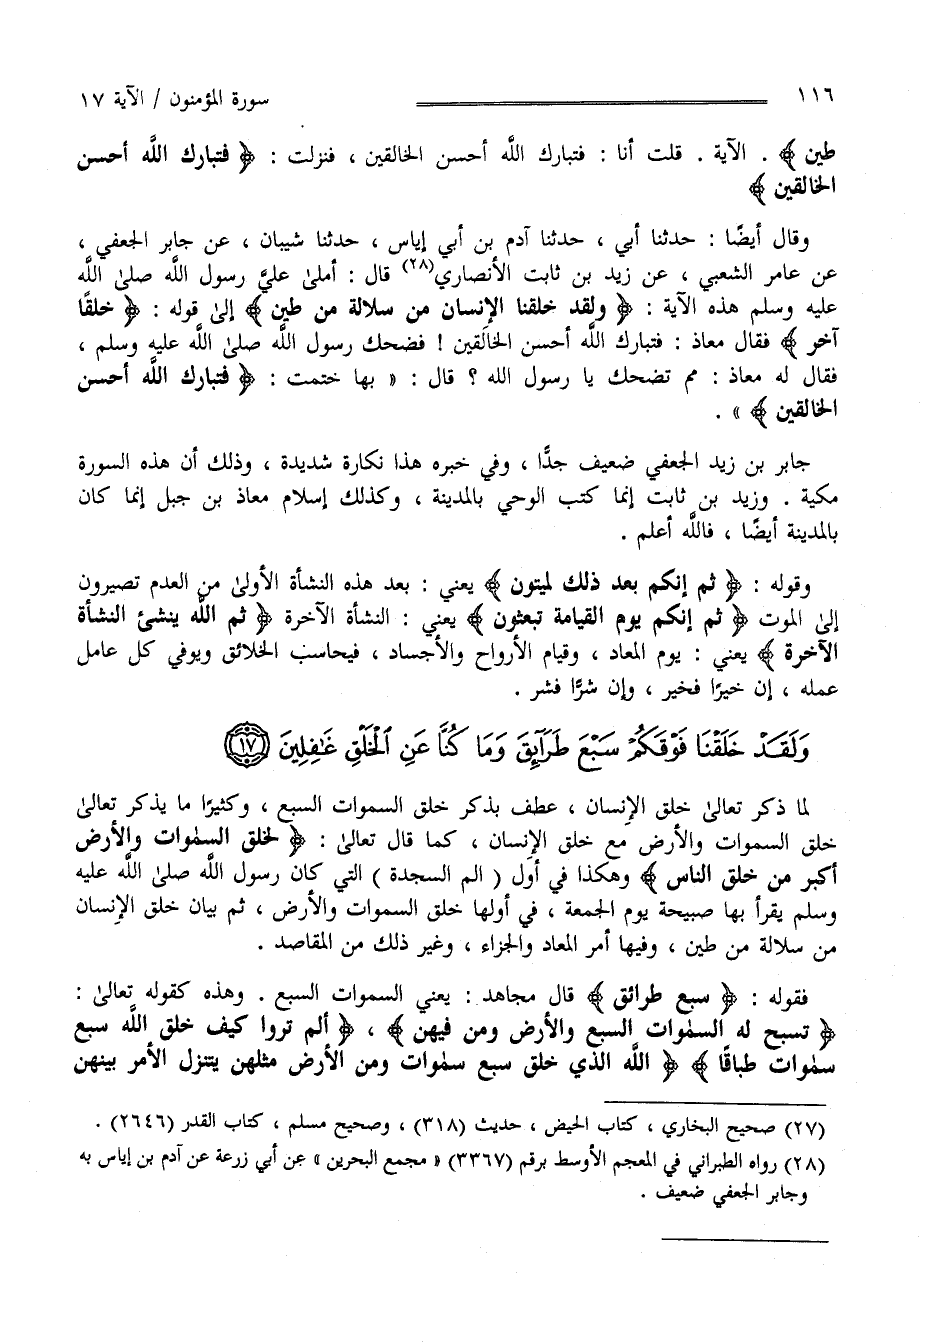 ١١٦ سورة المؤمنون / الآية ١٧
طين ﴾ . الآية . قلت أنا : فتبارك اللَّه أحسن الخالقين ، فنزلت : ﴿ فتبارك اللَّه أحسن
الخالقين ﴾
وقال أيضًا : حدثنا أبي ، حدثنا آدم بن أبي إياس ، حدثنا شيبان ، عن جابر الجعفي ،
عن عامر الشعبي ، عن زيد بن ثابت الأنصاري(٢٨) قال : أملىٰ عليَّ رسول اللَّه صلىٰ اللَّه
عليه وسلم هذه الآية : ﴿ ولقد خلقنا الإنسان من سلالة من طين ﴾ إلىٰ قوله : ﴿ خلقًا
آخر ﴾ فقال معاذ : فتبارك اللَّه أحسن الخالَقين ! فضحك رسول اللَّه صلىٰ اللَّه عليه وسلم ،
فقال له معاذ : مم تضحك يا رسول الله ؟ قال : « بها ختمت : ﴿ فتبارك اللَّه أحسن
الخالقين ﴾ » .
جابر بن زيد الجعفي ضعيف جدًّا ، وفي خبره هذا نكارة شديدة ، وذلك أن هذه السورة
مكية . وزيد بن ثابت إنما كتب الوحي بالمدينة ، وكذلك إسلام معاذ بن جبل إنما كان
بالمدينة أيضًا ، فاللَّه أعلم .
وقوله : ﴿ ثم إنكم بعد ذلك لميتون ﴾ يعني : بعد هذه النشأة الأولىٰ من العدم تصيرون
إلىٰ الموت ﴿ ثم إنكم يوم القيامة تبعثون ﴾ يعني : النشأة الآخرة ﴿ ثم اللَّه ينشئ النشأة
الآخرة ﴾ يعني : يوم المعاد ، وقيام الأرواح والأجساد ، فيحاسب الخلائق ويوفي كل عامل
عمله ، إن خيرًا فخير ، وإن شرًّا فشر .
وَلَقَدْ خَلَقْنَا فَوْقَكُمْ سَبْعَ طَرَآئِقَ وَمَا كُنَّا عَنِ ٱلْخَلْقِ غَٰفِلِينَ ﴿١٧﴾
لما ذكر تعالىٰ خلق الإنسان ، عطف بذكر خلق السموات السبع ، وكثيرًا ما يذكر تعالىٰ
خلق السموات والأرض مع خلق الإنسان ، كما قال تعالىٰ : ﴿ لخلق السمٰوات والأرض
أكبر من خلق الناس ﴾ وهكذا في أول ( الم السجدة ) التي كان رسول اللَّه صلىٰ اللَّه عليه
وسلم يقرأ بها صبيحة يوم الجمعة ، في أولها خلق السموات والأرض ، ثم بيان خلق الإنسان
من سلالة من طين ، وفيها أمر المعاد والجزاء ، وغير ذلك من المقاصد .
فقوله : ﴿ سبع طرائق ﴾ قال مجاهد : يعني السموات السبع . وهذه كقوله تعالىٰ :
﴿ تسبح له السمٰوات السبع والأرض ومن فيهن ﴾ ، ﴿ ألم تروا كيف خلق اللَّه سبع
سمٰوات طباقًا ﴾ ﴿ اللَّه الذي خلق سبع سمٰوات ومن الأرض مثلهن يتنزل الأمر بينهن
(٢٧) صحيح البخاري ، كتاب الحيض ، حديث (٣١٨) ، وصحيح مسلم ، كتاب القدر (٢٦٤٦) .
(٢٨) رواه الطبراني في المعجم الأوسط برقم (٣٣٦٧) « مجمع البحرين » عن أبي زرعة عن آدم بن إياس به
وجابر الجعفي ضعيف .